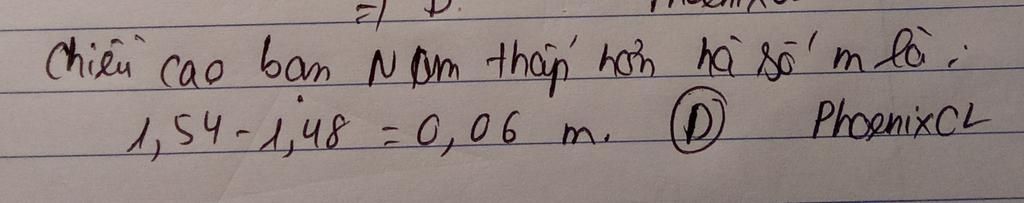 => D.
Chiều cao bạn Nam thấp hơn hà số m là :
1,54 - 1,48 = 0,06 m. D PhoenixCL